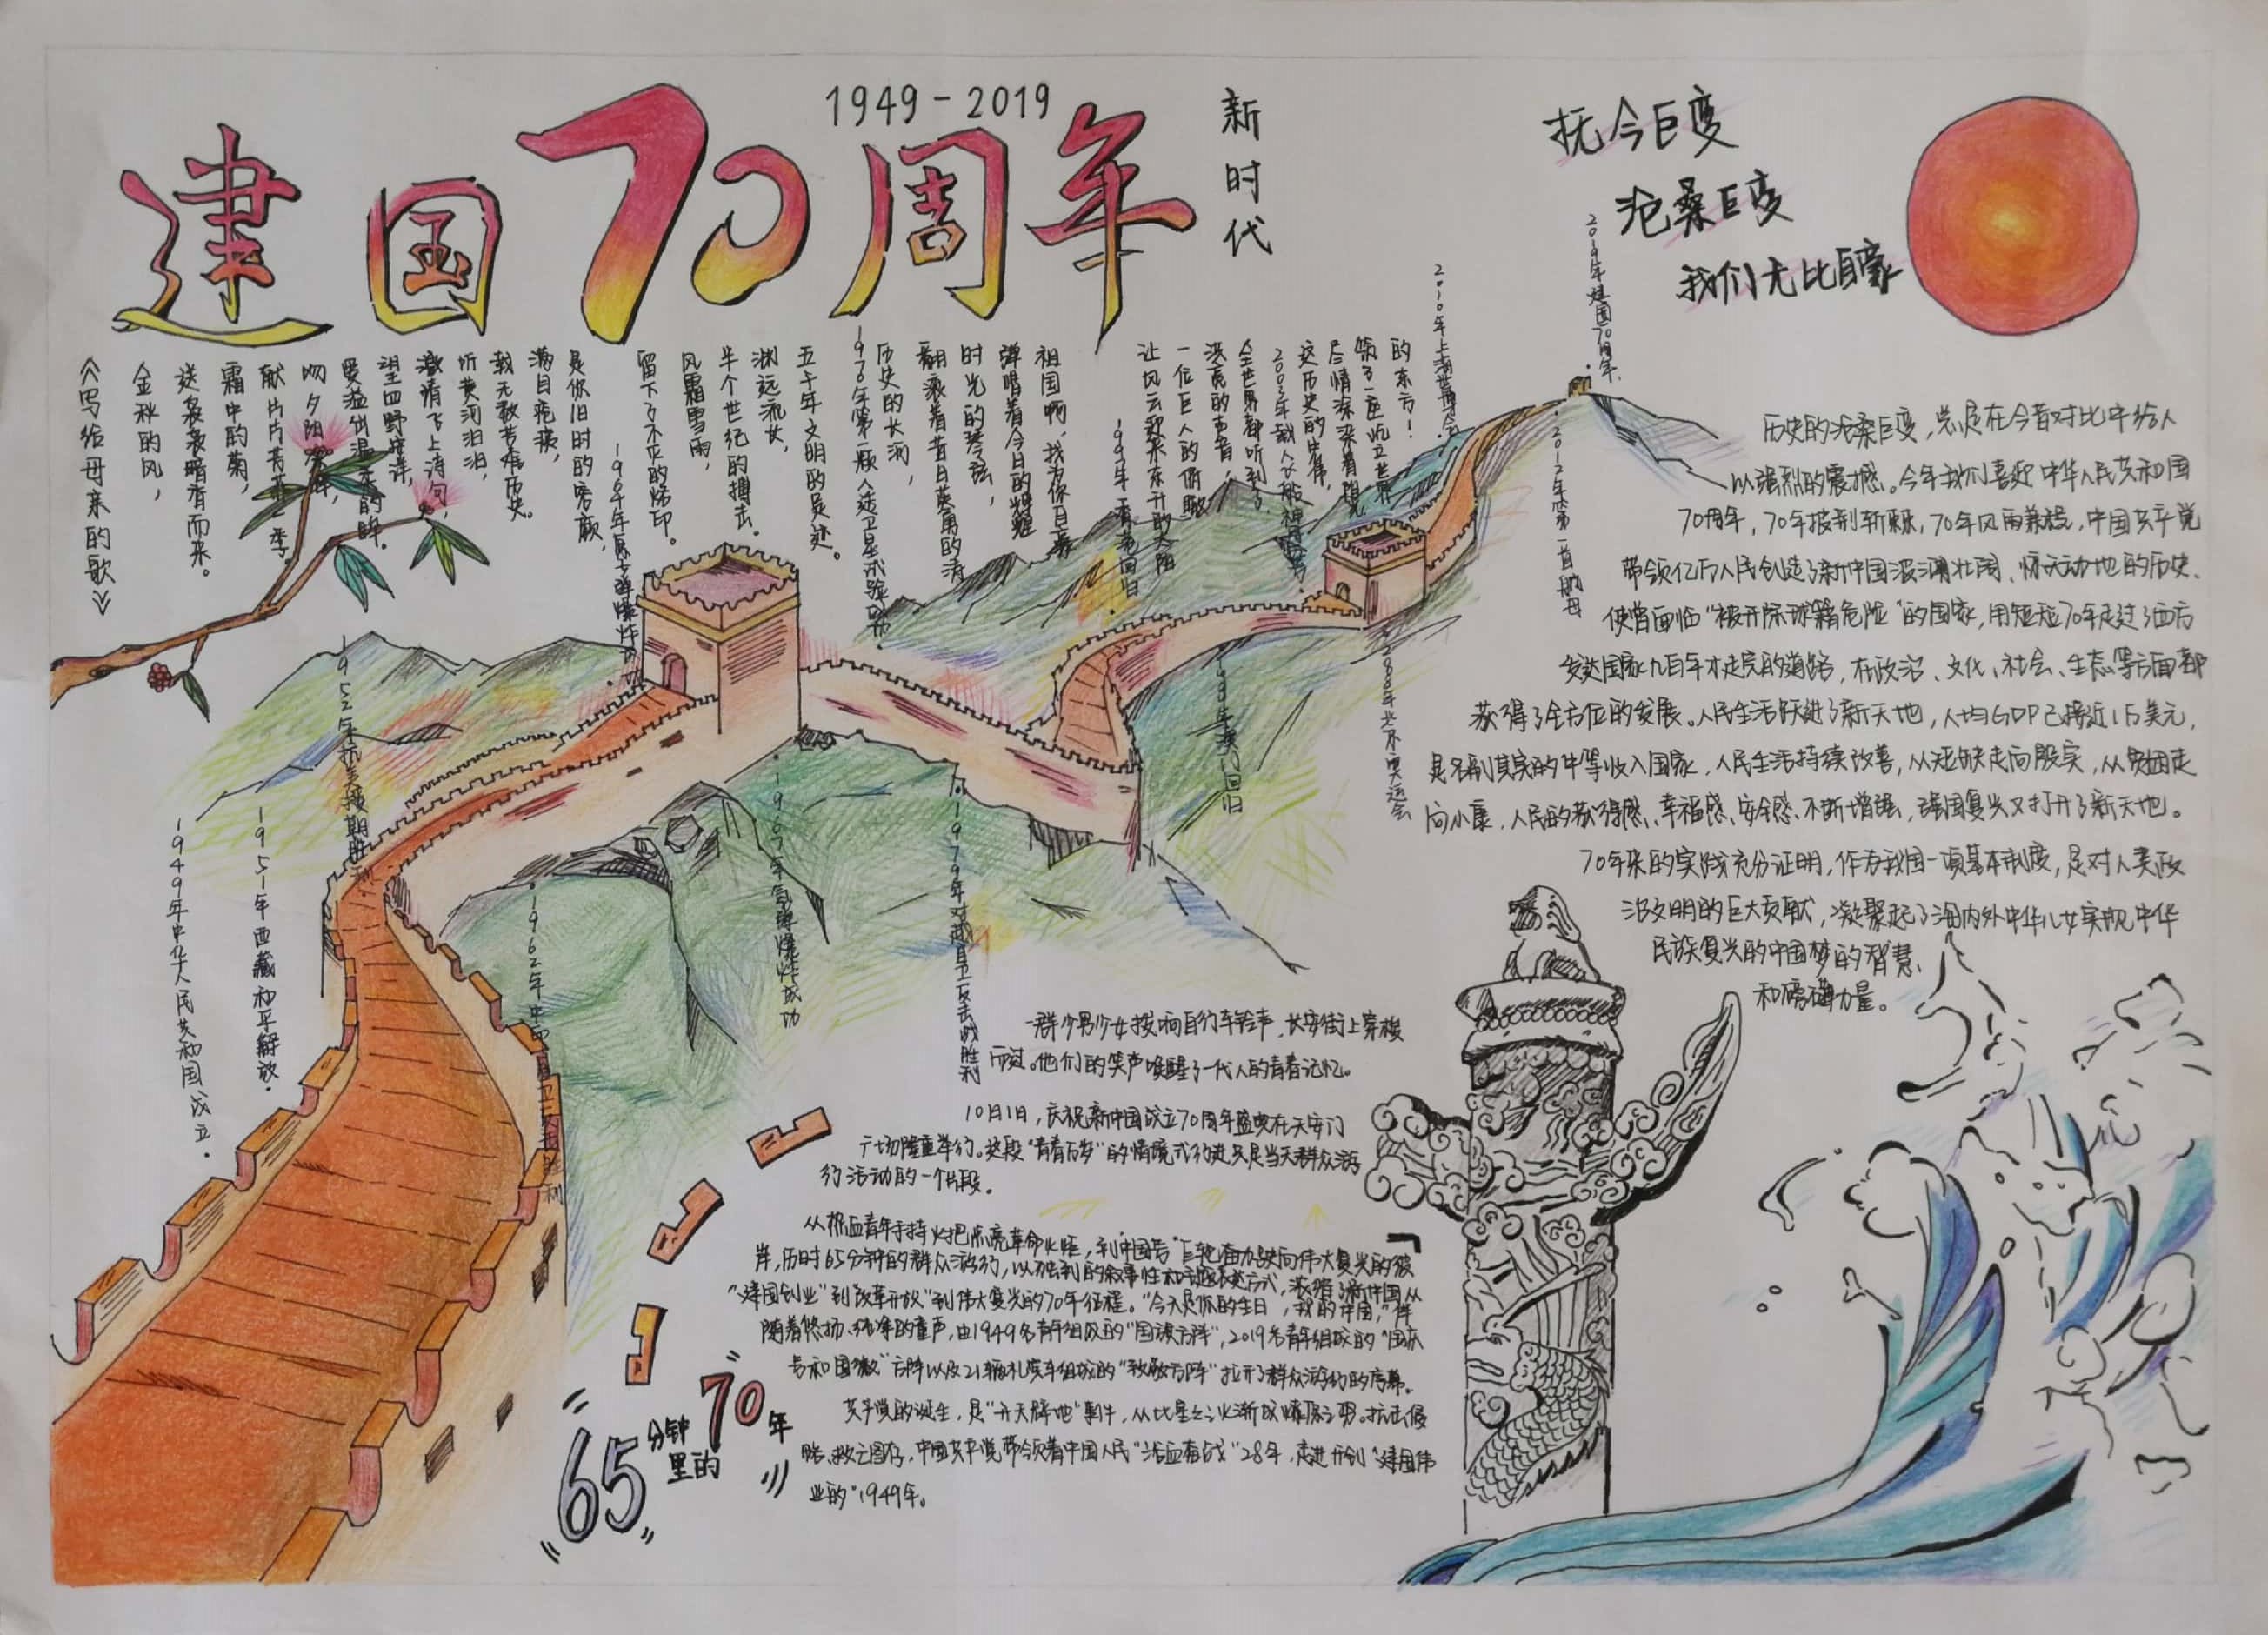 1949-2019
建国70周年
新时代
抚今巨变
沧桑巨变
我们无比自豪
《写给母亲的歌》
金秋的风,
送袅袅暗香而来。
霜中的菊,
献片片芳菲一季。
吻夕阳余晖,
望四野茫茫,
激情飞上诗句,
听黄河汩汩,
载无数苦难历史。
满目疮痍,
是你旧时的容颜,
留下了不灭的烙印。
风霜雪雨,
半个世纪的搏击。
渊远流长,
五千年文明的足迹。
历史的长河,
翻滚着昔日英勇的涛
时光的琴弦,
弹唱着今日的辉煌
祖国啊,我为你自豪
让风云起来东升的太阳
一位巨人的俯瞰
全世界都听到了
这历史的
尽情
筑了一座屹立世界
的东方!
1949年中华人民共和国成立.
1951年西藏和平解放.
1952年抗美援朝胜利.
1962年中印自卫反击胜利
1964年原子弹爆炸成功
1967年氢弹爆炸成功
1970年第一颗人造卫星试验成功.
1979年对越自卫反击战胜利
1997年香港回归
1999年澳门回归
2003年载人飞船神舟
2008年北京奥运会
2010年上海世博会
2012年第一首航母
2019年建国70周年.
历史的沧桑巨变,总是在今昔对比中给人
以强烈的震撼。今年我们喜迎中华人民共和国
70周年,70年披荆斩棘,70年风雨兼程,中国共产党
带领亿万人民创造了新中国波澜壮阔、惊天动地的历史、
使曾面临“被开除球籍危险”的国家,用短短70年走过了西方
发达国家几百年才走完的道路,在政治、文化、社会、生态等方面都
获得了全方位的发展。人民生活跃进了新天地,人均GDP已接近1万美元,
是名副其实的中等收入国家,人民生活持续改善,从短缺走向殷实,从贫困走
向小康,人民的获得感、幸福感、安全感、不断增强,强国复兴又打开了新天地。
70年来的实践充分证明,作为我国一项基本制度,是对人类政
治文明的巨大贡献,凝聚起了海内外中华儿女实现中华
民族复兴的中国梦的智慧、
和磅礴力量。
一群少男少女按响自行车铃声,长安街上穿梭
而过。他们的笑声唤醒了一代人的青春记忆。
10月1日,庆祝新中国成立70周年盛典在天安门
广场隆重举行。这段“青春万岁”的情境式行进只是当天群众游
行活动的一个片段。
从热血青年手持火把点亮革命火炬,到“中国号”巨轮奋力驶向伟大复兴的彼
岸,历时65分钟的群众游行,以独到的叙事性和表达方式,浓缩了新中国从
“建国创业”到“改革开放”到伟大复兴的70年征程。“今天是你的生日,我的中国,”伴
随着悠扬、纯净的童声,由1949名青年组成的“国旗方阵”,2019名青年组成的“国庆
号和国徽”方阵以及21辆礼宾车组成的“致敬方阵”拉开了群众游行的序幕。
共产党的诞生,是“开天辟地”事件,从此星星之火渐成燎原之势。抗击侵
略、救亡图存,中国共产党带领着中国人民“浴血奋战”28年,走进开创“建国伟
业的”1949年。
“65”分钟里的“70”年